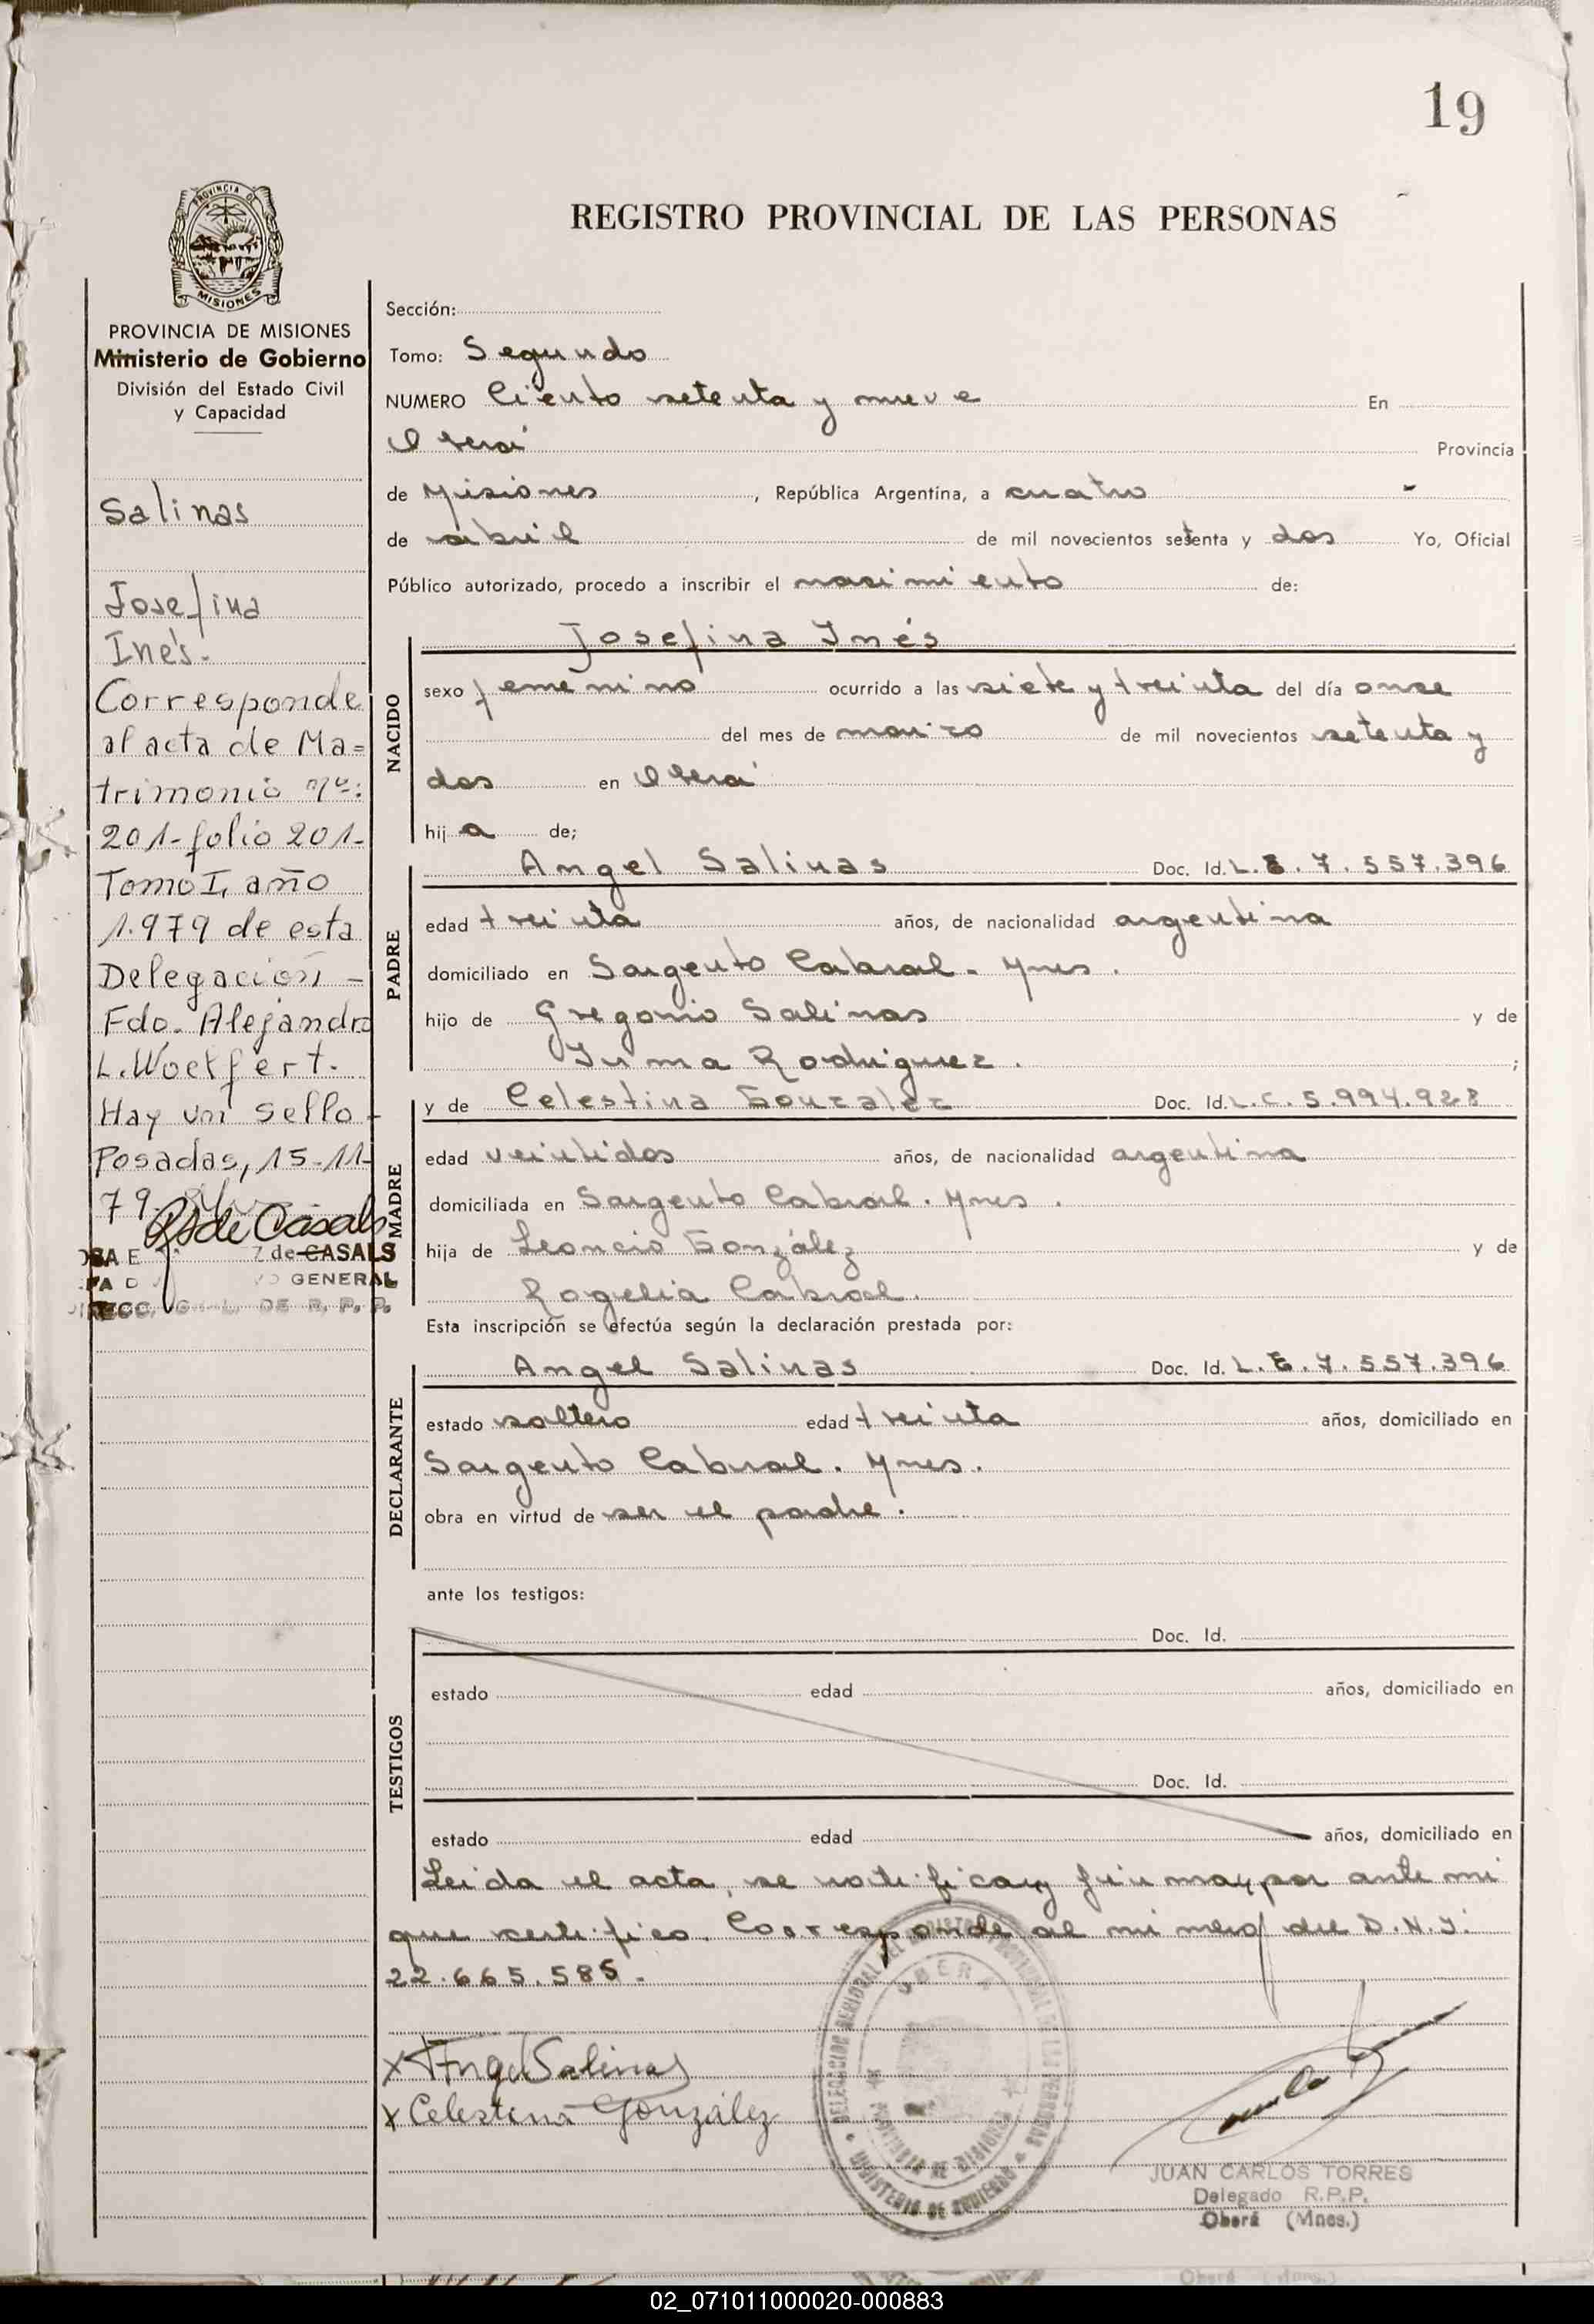 19
PROVINCIA DE
MISIONES
REGISTRO PROVINCIAL DE LAS PERSONAS
PROVINCIA DE MISIONES
Ministerio de Gobierno
División del Estado Civil
y Capacidad
Salinas
Josefina
Inés.
Corresponde
al acta de Ma=
trimonio nº:
201-folio 201-
Tomo I, año
1.979 de esta
Delegación -
Fdo. Alejandro
L. Woelfert.
Hay un sello -
Posadas, 15-11-
79.
de Casals
de CASALS
GENERAL
DE R. P. P.
Sección:
Tomo: Segundo
NUMERO Ciento setenta y nueve En
Oberá Provincia
de Misiones, República Argentina, a cuatro
de abril de mil novecientos setenta y dos Yo, Oficial
Público autorizado, procedo a inscribir el nacimiento de:
NACIDO
Josefina Inés
sexo femenino ocurrido a las siete y treinta del día once
del mes de marzo de mil novecientos setenta y
dos en Oberá
hija de;
PADRE
Angel Salinas Doc. Id. L.E. 7.557.396
edad treinta años, de nacionalidad argentina
domiciliado en Sargento Cabral. Mnes.
hijo de Gregorio Salinas y de
Irma Rodriguez. ;
MADRE
y de Celestina Gonzalez Doc. Id. L.C. 5.994.928
edad veintidos años, de nacionalidad argentina
domiciliada en Sargento Cabral. Mnes.
hija de Leoncio González y de
Rogelia Cabral.
Esta inscripción se efectúa según la declaración prestada por:
DECLARANTE
Angel Salinas Doc. Id. L.E. 7.557.396
estado soltero edad treinta años, domiciliado en
Sargento Cabral. Mnes.
obra en virtud de ser el padre.
ante los testigos:
TESTIGOS
Doc. Id.
estado edad años, domiciliado en
Doc. Id.
estado edad años, domiciliado en
Leida el acta, se ratifica y firma, por ante mi
que certifico. Corresponde al número del D.N.I.
22.665.585.
x Angel Salinas
x Celestina González
OBERA
MINISTERIO DE GOBIERNO
JUAN CARLOS TORRES
Delegado R.P.P.
Oberá (Mnes.)
02_071011000020-000883